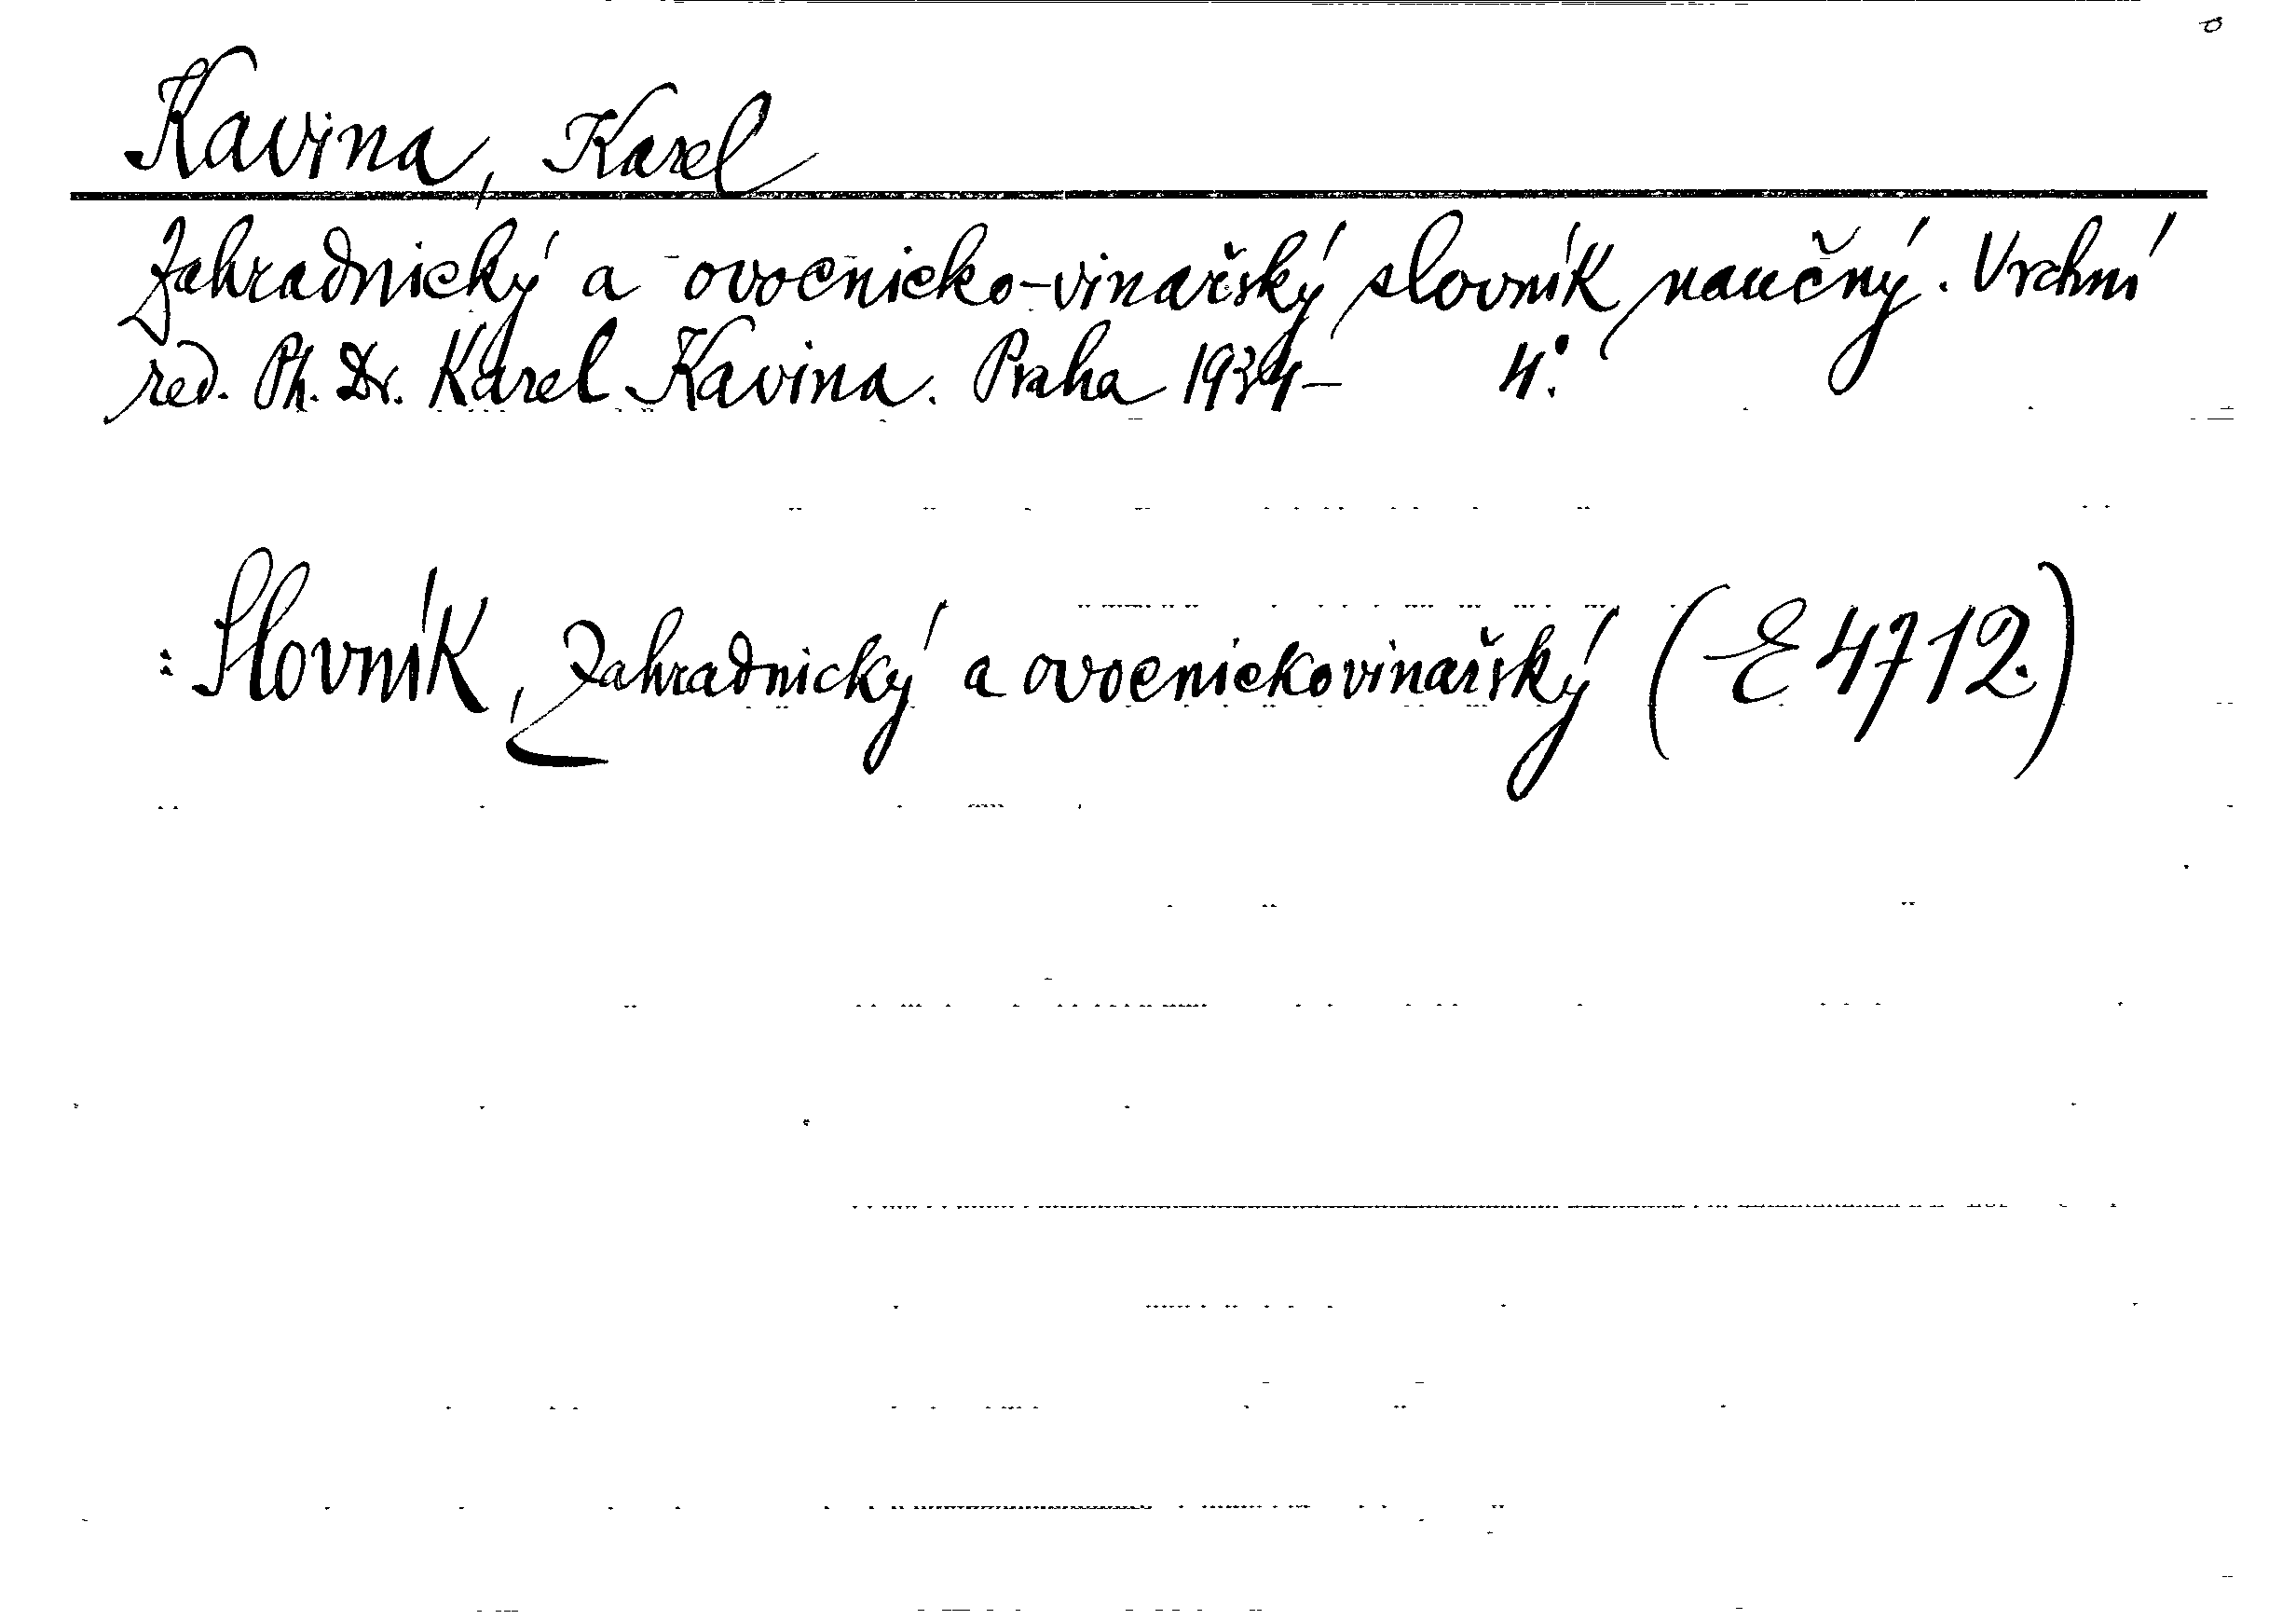 Kavina, Karel
Zahradnický a ovocnicko-vinařský slovník naučný. Vrchní
red. Ph. Dr. Karel Kavina. Praha 1934- 4°.
: Slovník, Zahradnický a ovocnickovinařský (E 4712.)